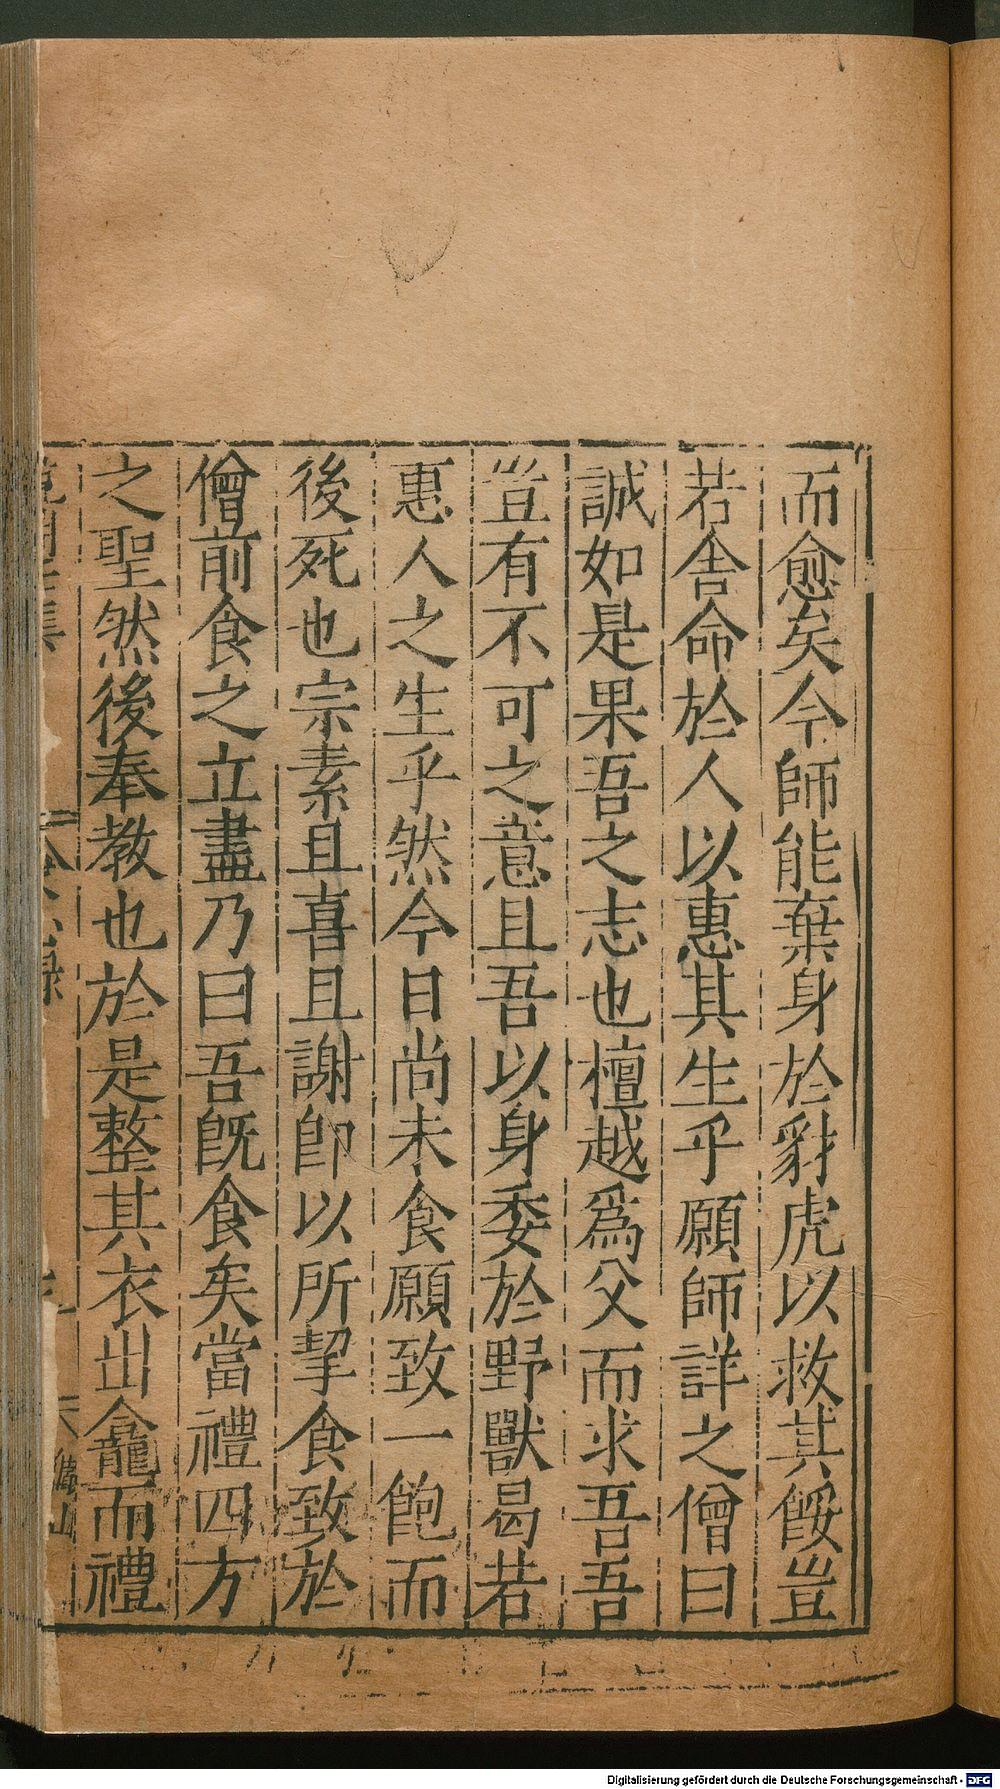 而愈矣今師能棄身於豺虎以救其餒豈
若舎命於人以惠其生乎願師詳之僧曰
誠如是果吾之志也檀越爲父而求吾吾
豈有不可之意且吾以身委於野獸曷若
惠人之生乎然今日尚未食願致一飽而
後死也宗素且喜且謝即以所挈食致於
僧前食之立盡乃曰吾既食矣當禮四方
之聖然後奉教也於是整其衣出龕而禮
Digitalisierung gefördert durch die Deutsche Forschungsgemeinschaft - DFG